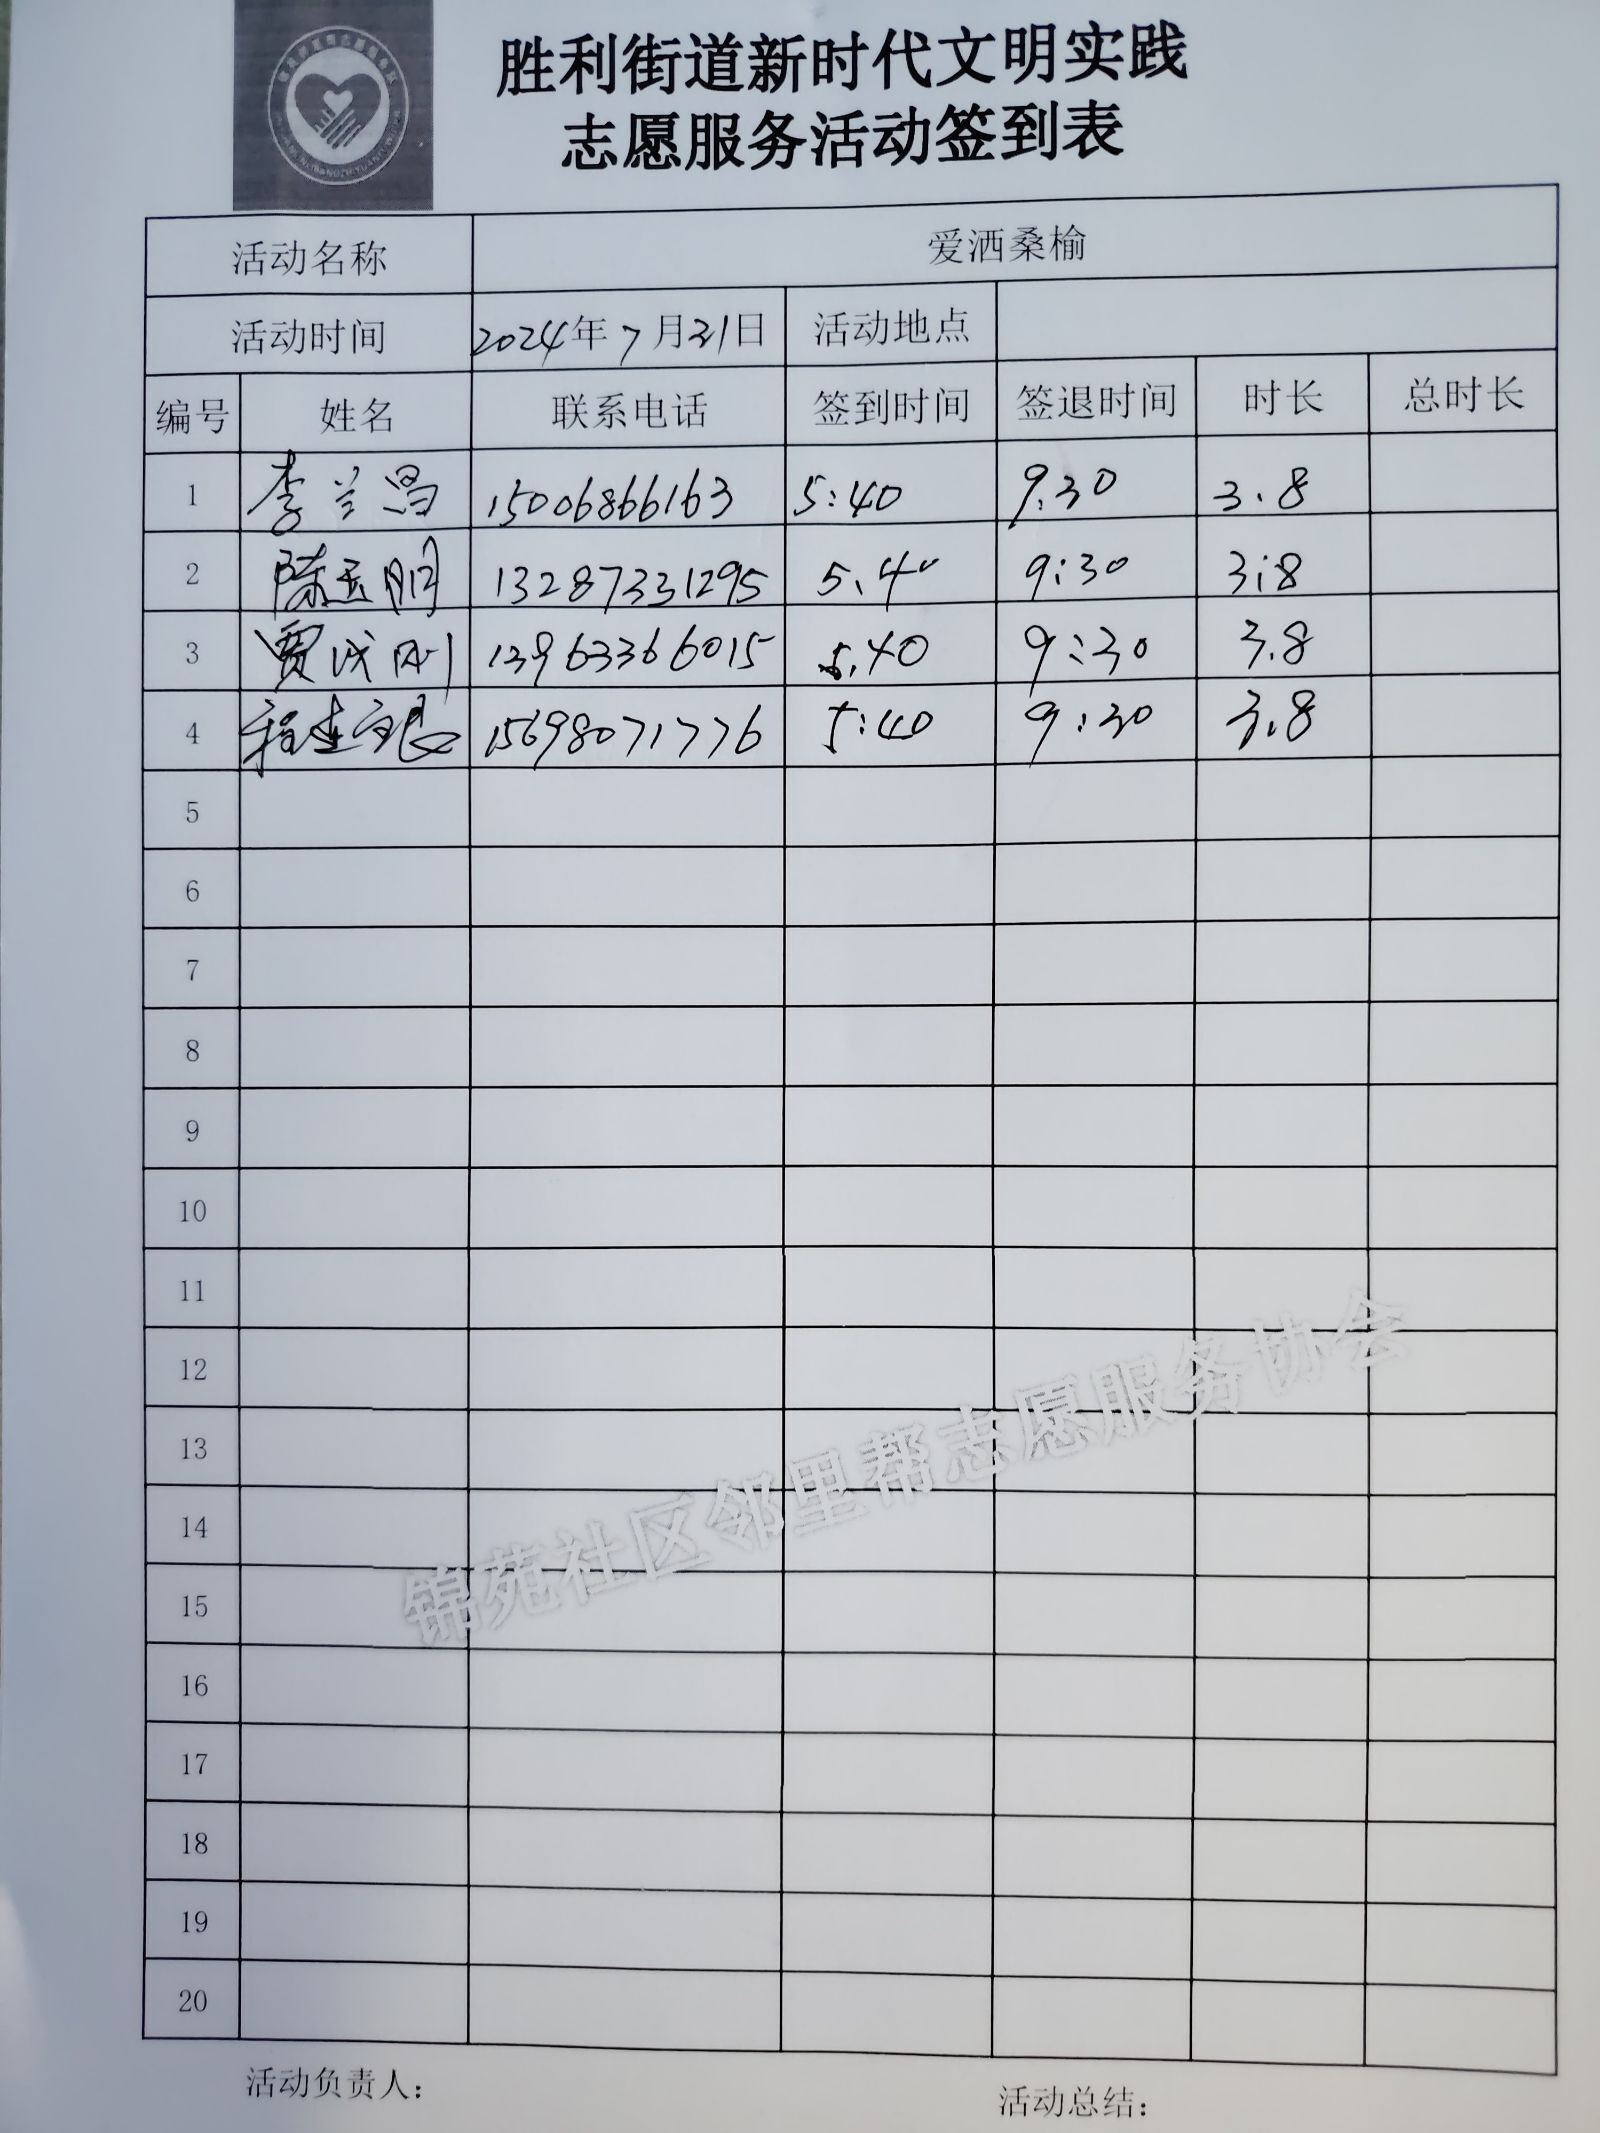 胜利街道新时代文明实践
志愿服务活动签到表
活动名称 爱洒桑榆
活动时间 2024年7月21日 活动地点
编号 姓名 联系电话 签到时间 签退时间 时长 总时长
1 李兰昌 15006866163 5:40 9:30 3.8
2 陈玉明 13287331295 5.40 9:30 3:8
3 贾成刚 13963366015 5.40 9:30 3.8
4 程连良 15698071776 5:40 9:30 3.8
5
6
7
8
9
10
11
12
13
14
15
16
17
18
19
20
锦苑社区邻里帮志愿服务协会
活动负责人：
活动总结：